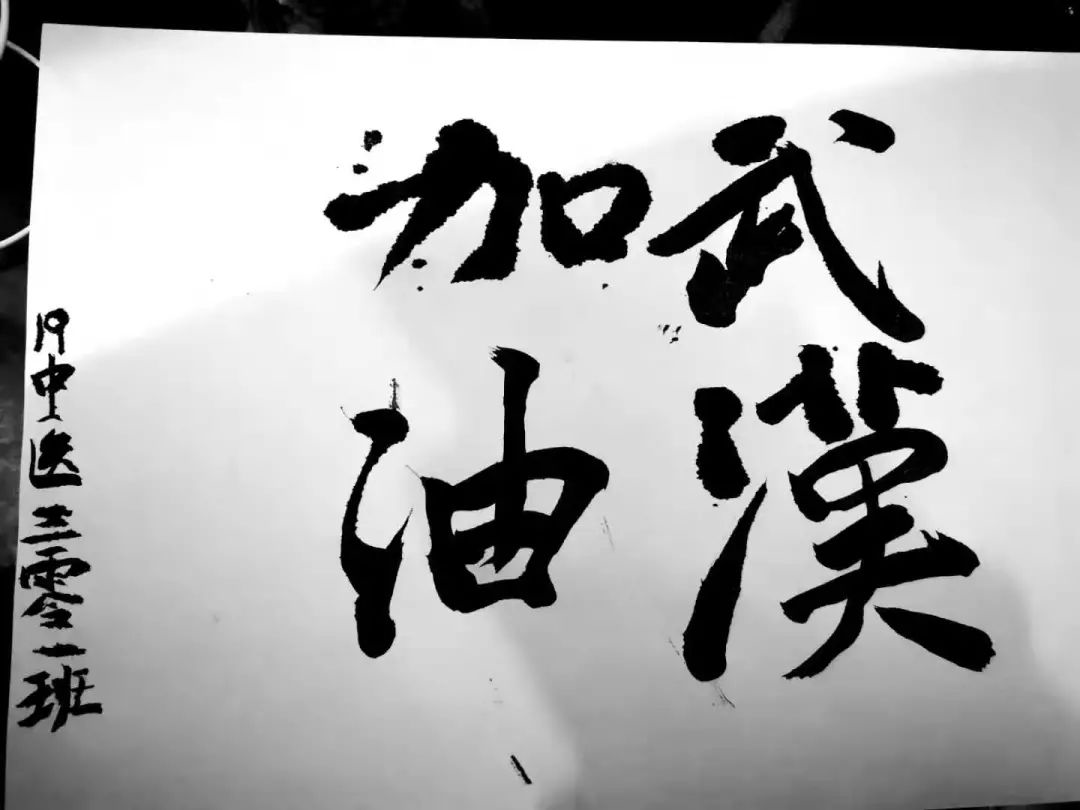 武漢
加油
19中医三零一班